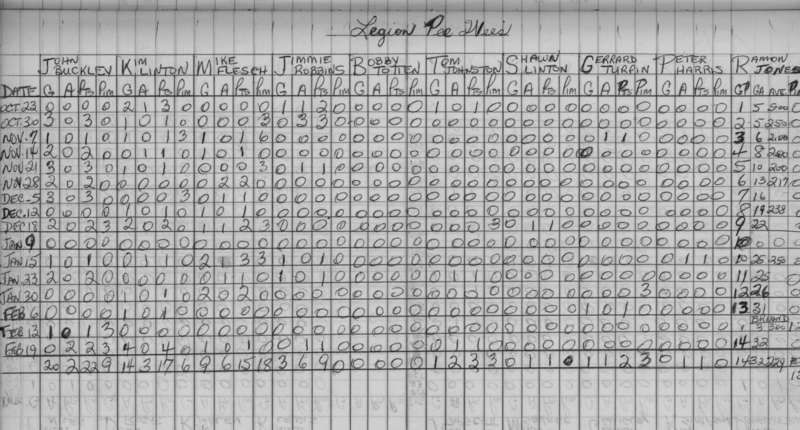 Legion Pee Wees
JOHN BUCKLEY KIM LINTON MIKE FLESCH JIMMIE ROBBINS BOBBY TOTTEN TOM JOHNSTON SHAWN LINTON GERRARD TURPIN PETER HARRIS RAMON JONES
DATE G A Pts Pim G A Pts Pim G A Pts Pim G A Pts Pim G A Pts Pim G A Pts Pim G A Pts Pim G A Pts Pim G A Pts Pim GP GA AVE
OCT.23 0 0 0 0 2 1 3 0 0 0 0 0 1 1 2 0 0 0 0 0 1 0 1 0 0 0 0 0 0 0 0 0 0 0 0 0 1 5
OCT.30 3 0 3 0 1 0 1 0 0 0 0 3 0 3 3 0 0 0 0 0 0 0 0 0 0 0 0 0 0 0 0 0 0 0 0 0 2 5 250
NOV.7 1 0 1 0 1 0 1 3 1 0 1 6 0 0 0 0 0 0 0 0 0 0 0 0 0 0 0 0 0 1 1 0 0 0 0 0 3 6 200
NOV.14 2 0 2 0 0 1 1 0 1 0 1 0 0 0 0 0 0 0 0 0 0 0 0 0 0 0 0 0 0 0 0 0 0 0 0 0 4 8 200
NOV.21 3 0 3 0 1 0 1 0 0 0 0 3 0 1 1 0 0 0 0 0 0 0 0 0 0 0 0 0 0 0 0 0 0 0 0 0 5 10 200
NOV.28 2 0 2 0 0 0 0 0 0 2 2 0 0 0 0 0 0 0 0 0 0 0 0 0 0 0 0 0 0 0 0 0 0 0 0 0 6 13 217
DEC.5 3 0 3 0 0 0 0 3 0 1 1 0 0 0 0 0 0 0 0 0 0 0 0 0 0 0 0 0 0 0 0 0 0 0 0 0 7 16
DEC.12 0 0 0 0 1 0 1 0 1 0 1 0 0 0 0 0 0 0 0 0 0 0 0 0 0 0 0 0 0 0 0 0 0 0 0 0 8 19 238
DEC 18 2 0 2 3 2 0 2 0 1 1 2 3 0 0 0 0 0 0 0 0 0 0 0 3 0 1 1 0 0 0 0 0 0 0 0 0 9 22
JAN 9 0 0 0 0 0 0 0 0 0 0 0 0 0 0 0 0 0 0 0 0 0 0 0 0 0 0 0 0 0 0 0 0 0 0 0 0
JAN 15 1 0 1 0 0 1 1 0 2 1 3 3 1 0 1 0 0 0 0 0 0 0 0 0 0 0 0 0 0 0 0 0 0 1 1 0 10 25 250
JAN.23 2 0 2 0 0 0 0 0 0 1 1 0 1 0 1 0 0 0 0 0 0 1 1 0 0 0 0 0 0 0 0 0 0 0 0 0 11 25
JAN 30 0 0 0 0 0 1 0 1 0 2 0 2 0 0 0 0 0 0 0 0 0 0 0 0 0 0 0 0 0 0 0 3 0 0 0 0 12 26
FEB 6 0 0 0 0 1 0 1 0 0 0 0 0 0 0 0 0 0 0 0 0 0 0 0 0 0 0 0 0 1 0 1 0 0 0 0 0 13 31
FEB 13 1 0 1 3 0 0 0 0 0 0 0 0 0 0 0 0 0 0 0 0 0 0 0 0 0 0 0 0 0 0 0 0 0 0 0 0 3 300
FEB 19 0 2 2 3 4 0 4 0 1 0 1 0 0 1 1 0 0 0 0 0 0 1 1 0 0 0 0 0 0 0 0 0 0 0 0 0 14 32
20 2 22 9 14 3 17 6 9 6 15 18 3 6 9 0 0 0 0 0 1 2 3 3 0 1 1 0 1 1 2 3 0 1 1 0 14 32 229